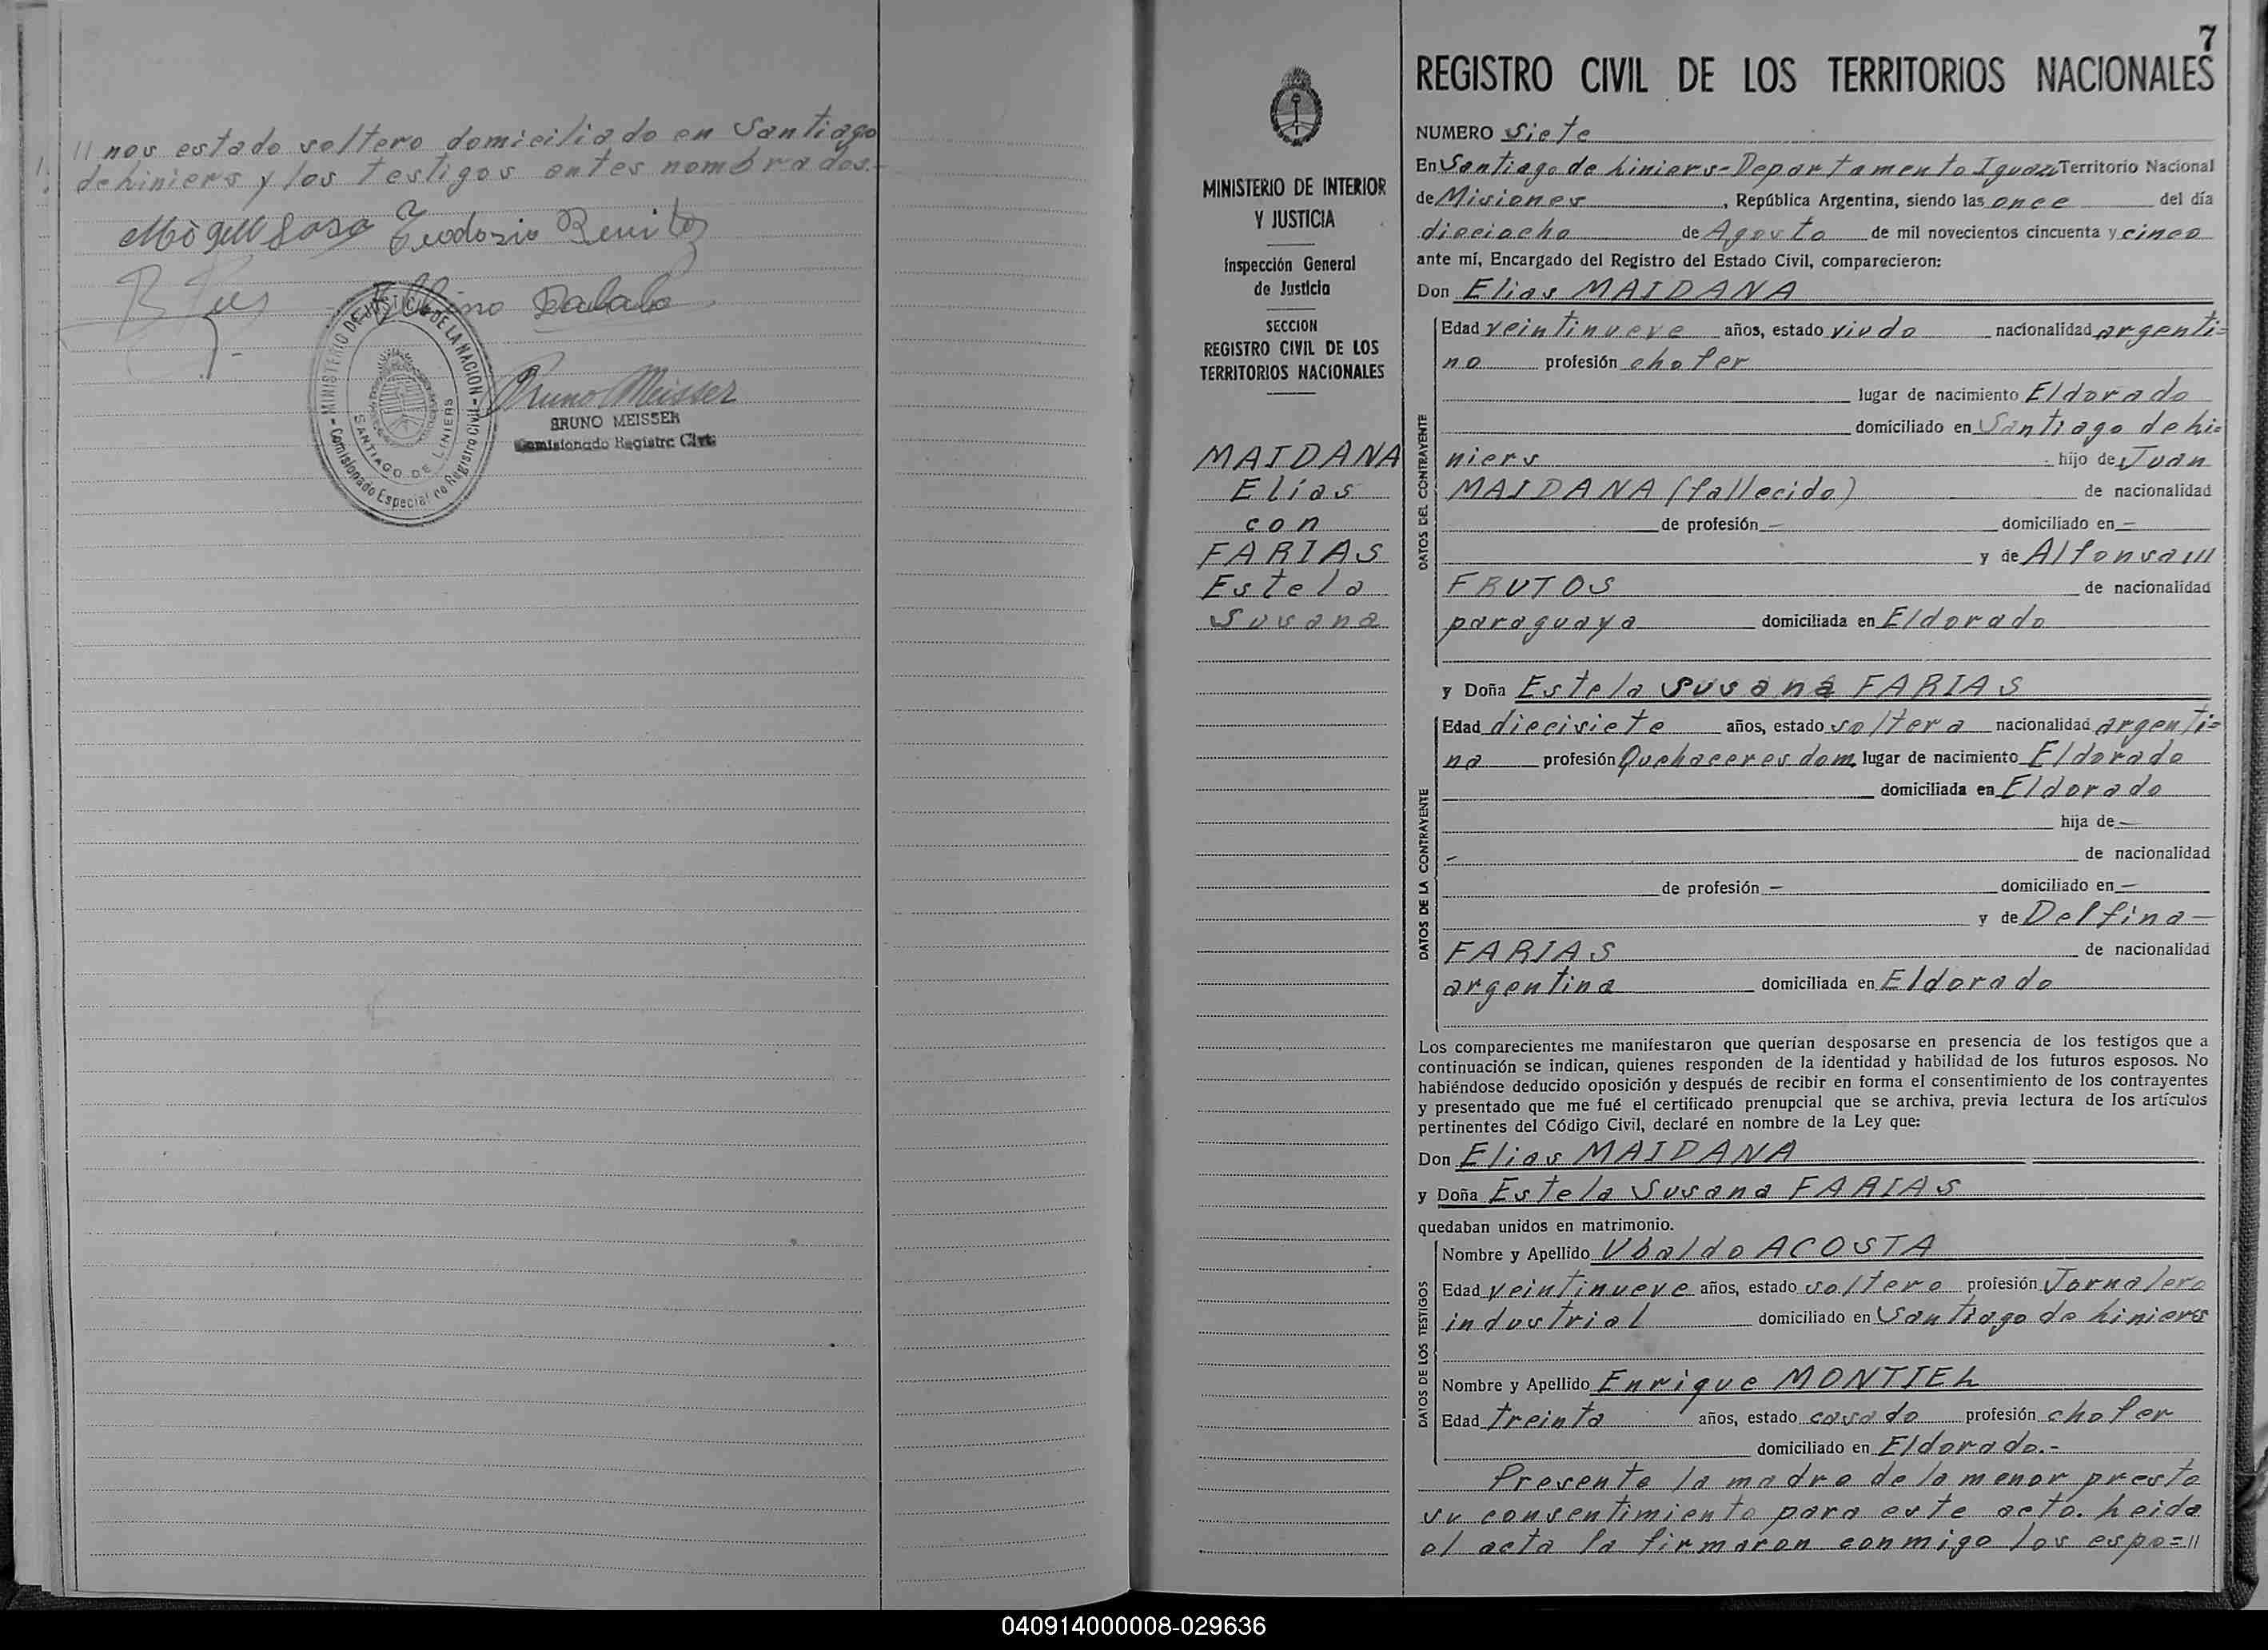 // nos estado soltero domiciliado en Santiago
de Liniers y los testigos antes nombrados.-
Sosa Teodosio Benitez
MINISTERIO DE JUSTICIA DE LA NACION - Comisionado Especial de Registro Civil -
SANTIAGO DE LINIERS
Bruno Meisser
BRUNO MEISSER
Comisionado Registro Civil
MINISTERIO DE INTERIOR
Y JUSTICIA
Inspección General
de Justicia
SECCION
REGISTRO CIVIL DE LOS
TERRITORIOS NACIONALES
MAIDANA
Elías
con
FARIAS
Estela
Susana
7
REGISTRO CIVIL DE LOS TERRITORIOS NACIONALES
NUMERO Siete
En Santiago de Liniers - Departamento Iguazu Territorio Nacional
de Misiones, República Argentina, siendo las once del día
dieciocho de Agosto de mil novecientos cincuenta y cinco
ante mí, Encargado del Registro del Estado Civil, comparecieron:
Don Elias MAIDANA
DATOS DEL CONTRAYENTE
Edad veintinueve años, estado viudo nacionalidad argenti=
no profesión chofer
lugar de nacimiento Eldorado
domiciliado en Santiago de Li=
niers hijo de Juan
MAIDANA (fallecido) de nacionalidad
de profesión - domiciliado en -
y de Alfonsa ///
FRUTOS de nacionalidad
paraguaya domiciliada en Eldorado
y Doña Estela Susana FARIAS
DATOS DE LA CONTRAYENTE
Edad diecisiete años, estado soltera nacionalidad argenti=
na profesión Quehaceres dom. lugar de nacimiento Eldorado
domiciliada en Eldorado
hija de -
- de nacionalidad
de profesión - domiciliado en -
y de Delfina -
FARIAS de nacionalidad
argentina domiciliada en Eldorado
Los comparecientes me manifestaron que querían desposarse en presencia de los testigos que a
continuación se indican, quienes responden de la identidad y habilidad de los futuros esposos. No
habiéndose deducido oposición y después de recibir en forma el consentimiento de los contrayentes
y presentado que me fué el certificado prenupcial que se archiva, previa lectura de los artículos
pertinentes del Código Civil, declaré en nombre de la Ley que:
Don Elias MAIDANA
y Doña Estela Susana FARIAS
quedaban unidos en matrimonio.
DATOS DE LOS TESTIGOS
Nombre y Apellido Ubaldo ACOSTA
Edad veintinueve años, estado soltero profesión Jornalero
industrial domiciliado en Santiago de Liniers
Nombre y Apellido Enrique MONTIEL
Edad treinta años, estado casado profesión chofer
domiciliado en Eldorado.-
Presente la madre de la menor presta
su consentimiento para este acto. Leida
el acta la firmaron conmigo los espo=//
040914000008-029636